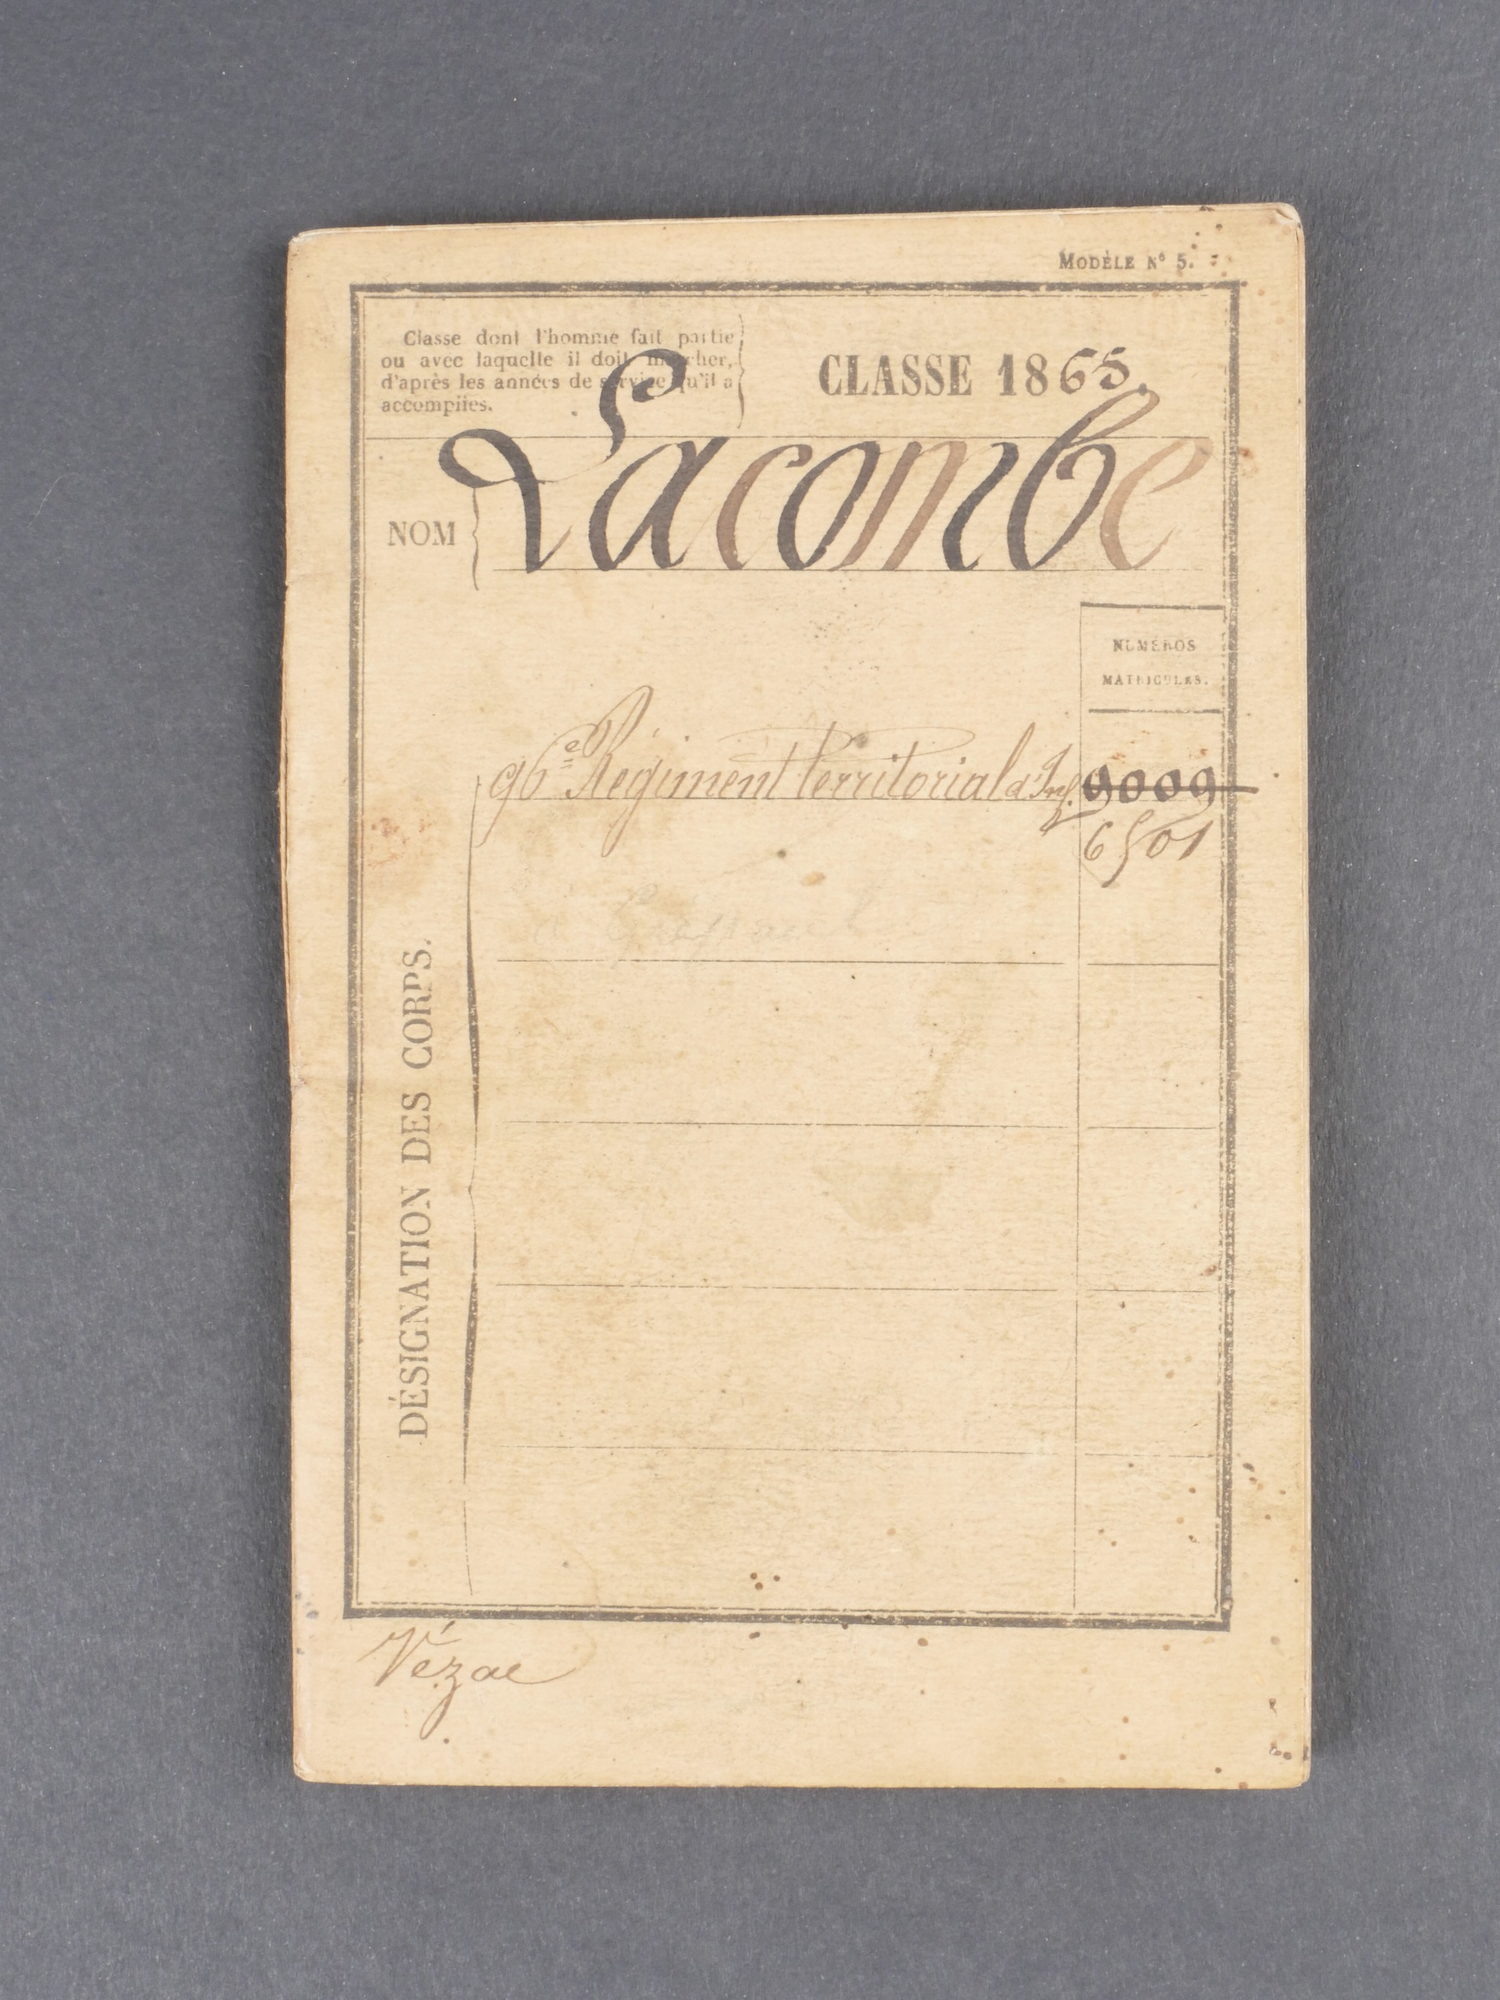 MODÈLE N° 5.
Classe dont l'homme fait partie
ou avec laquelle il doit marcher,
d'après les années de service qu'il a
accomplies.
CLASSE 1865.
NOM
Lacombe
NUMÉROS
MATRICULES.
96e Régiment territorial d'Inf.
9009
6501
DÉSIGNATION DES CORPS.
Vézac